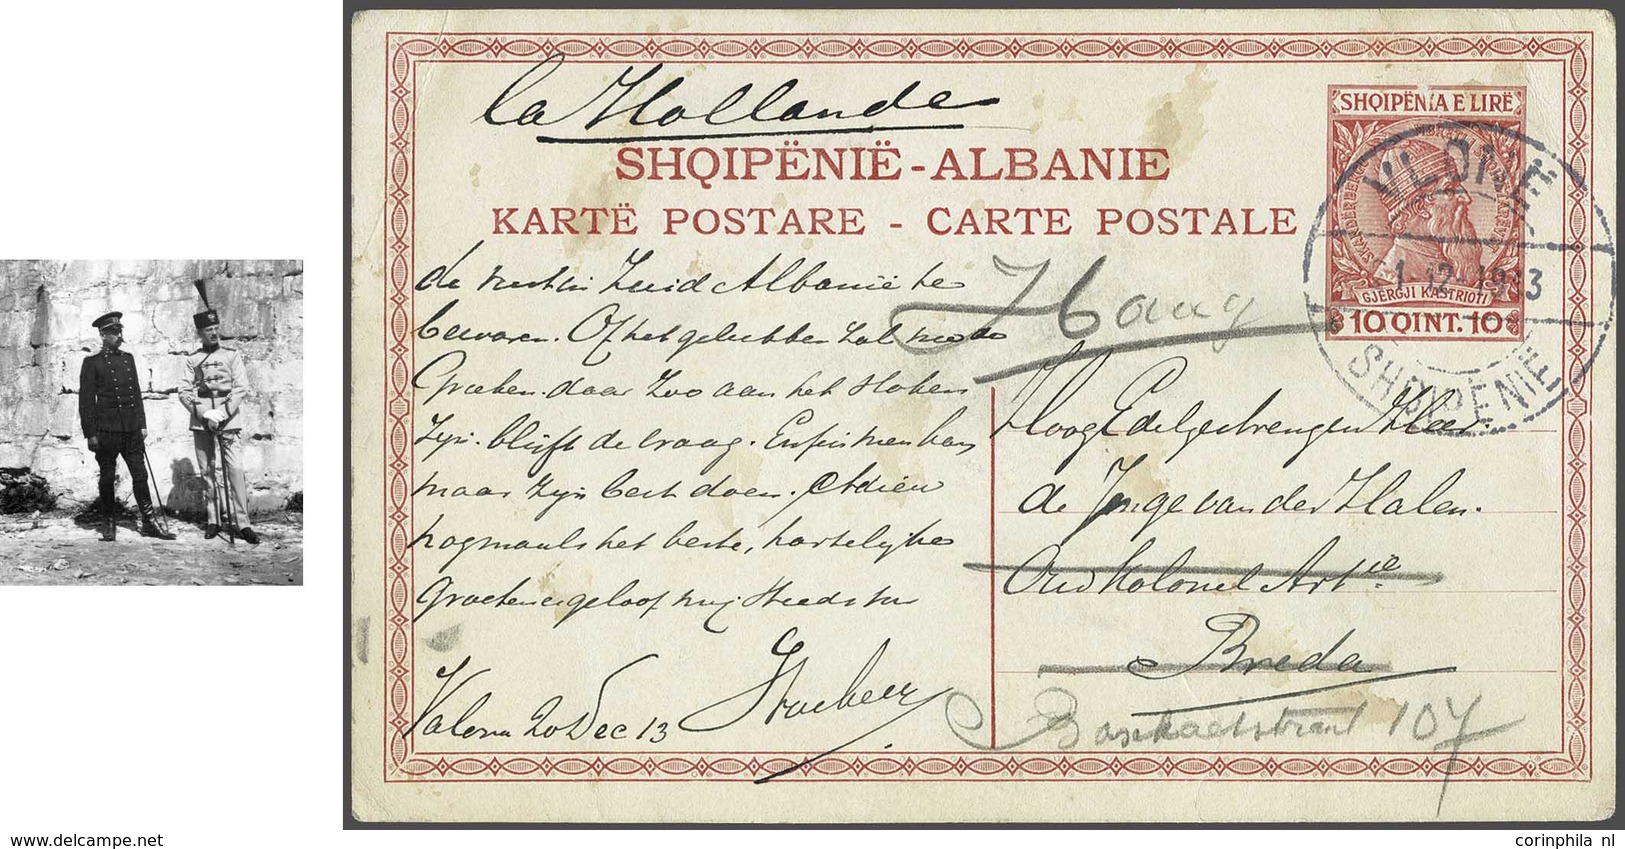 la Hollande
SHQIPËNIË - ALBANIE
KARTË POSTARE - CARTE POSTALE
SHQIPËNIA E LIRË
GJERGJI KASTRIOTI
10 QINT. 10
VLONË
21 12 1913
SHQIPËNIË
de rust in Zuid Albanië te
bewaren. Of het gelukken zal met de
Grieken daar zoo aan het stoken
zijn blijft de vraag. Enfin men kan
maar zijn best doen. Adieu
nogmaals het beste, hartelijke
Groeten en geloof mij steeds tw
Valona 20 Dec 13
Haag
HoogEdelgestrengen Heer
de Jonge van der Halen.
Oud Kolonel Artie
Breda
107
corinphila nl